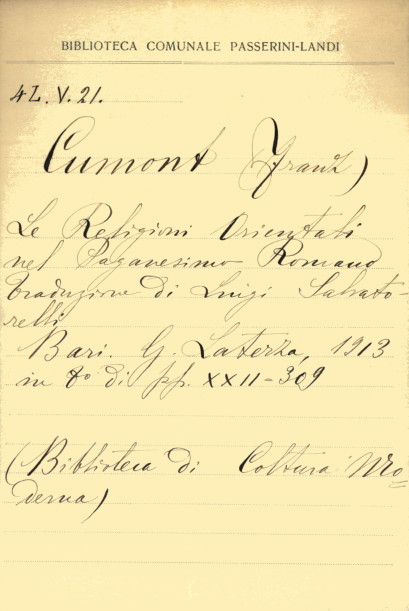 BIBLIOTECA COMUNALE PASSERINI-LANDI
4L.V.21.
Cumont (Franz)
Le Religioni Orientali
nel Paganesimo Romano
Traduzione di Luigi Salvato-
relli
Bari. G. Laterza, 1913
in 8º di pp. XXII-309
(Biblioteca di Coltura Mo=
derna)